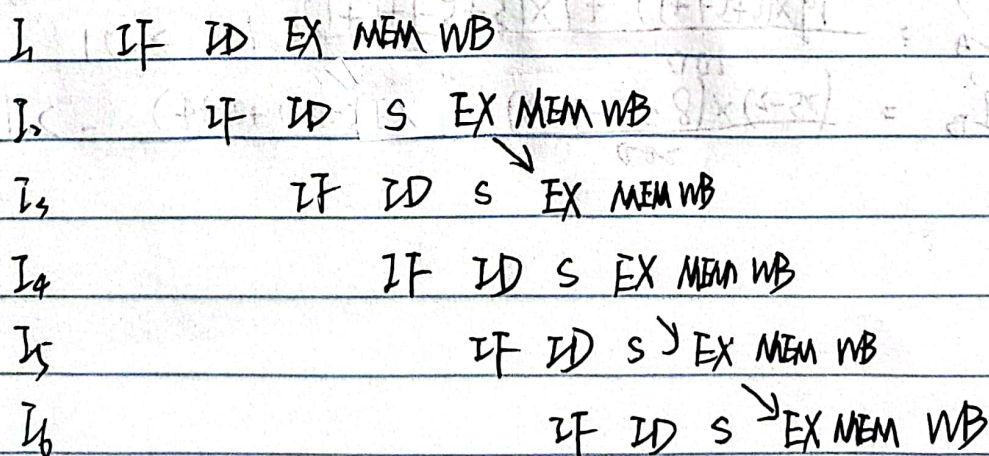 I₁ IF ID EX MEM WB
I₂ IF ID S EX MEM WB
I₃ IF ID S EX MEM WB
I₄ IF ID S EX MEM WB
I₅ IF ID S EX MEM WB
I₆ IF ID S EX MEM WB